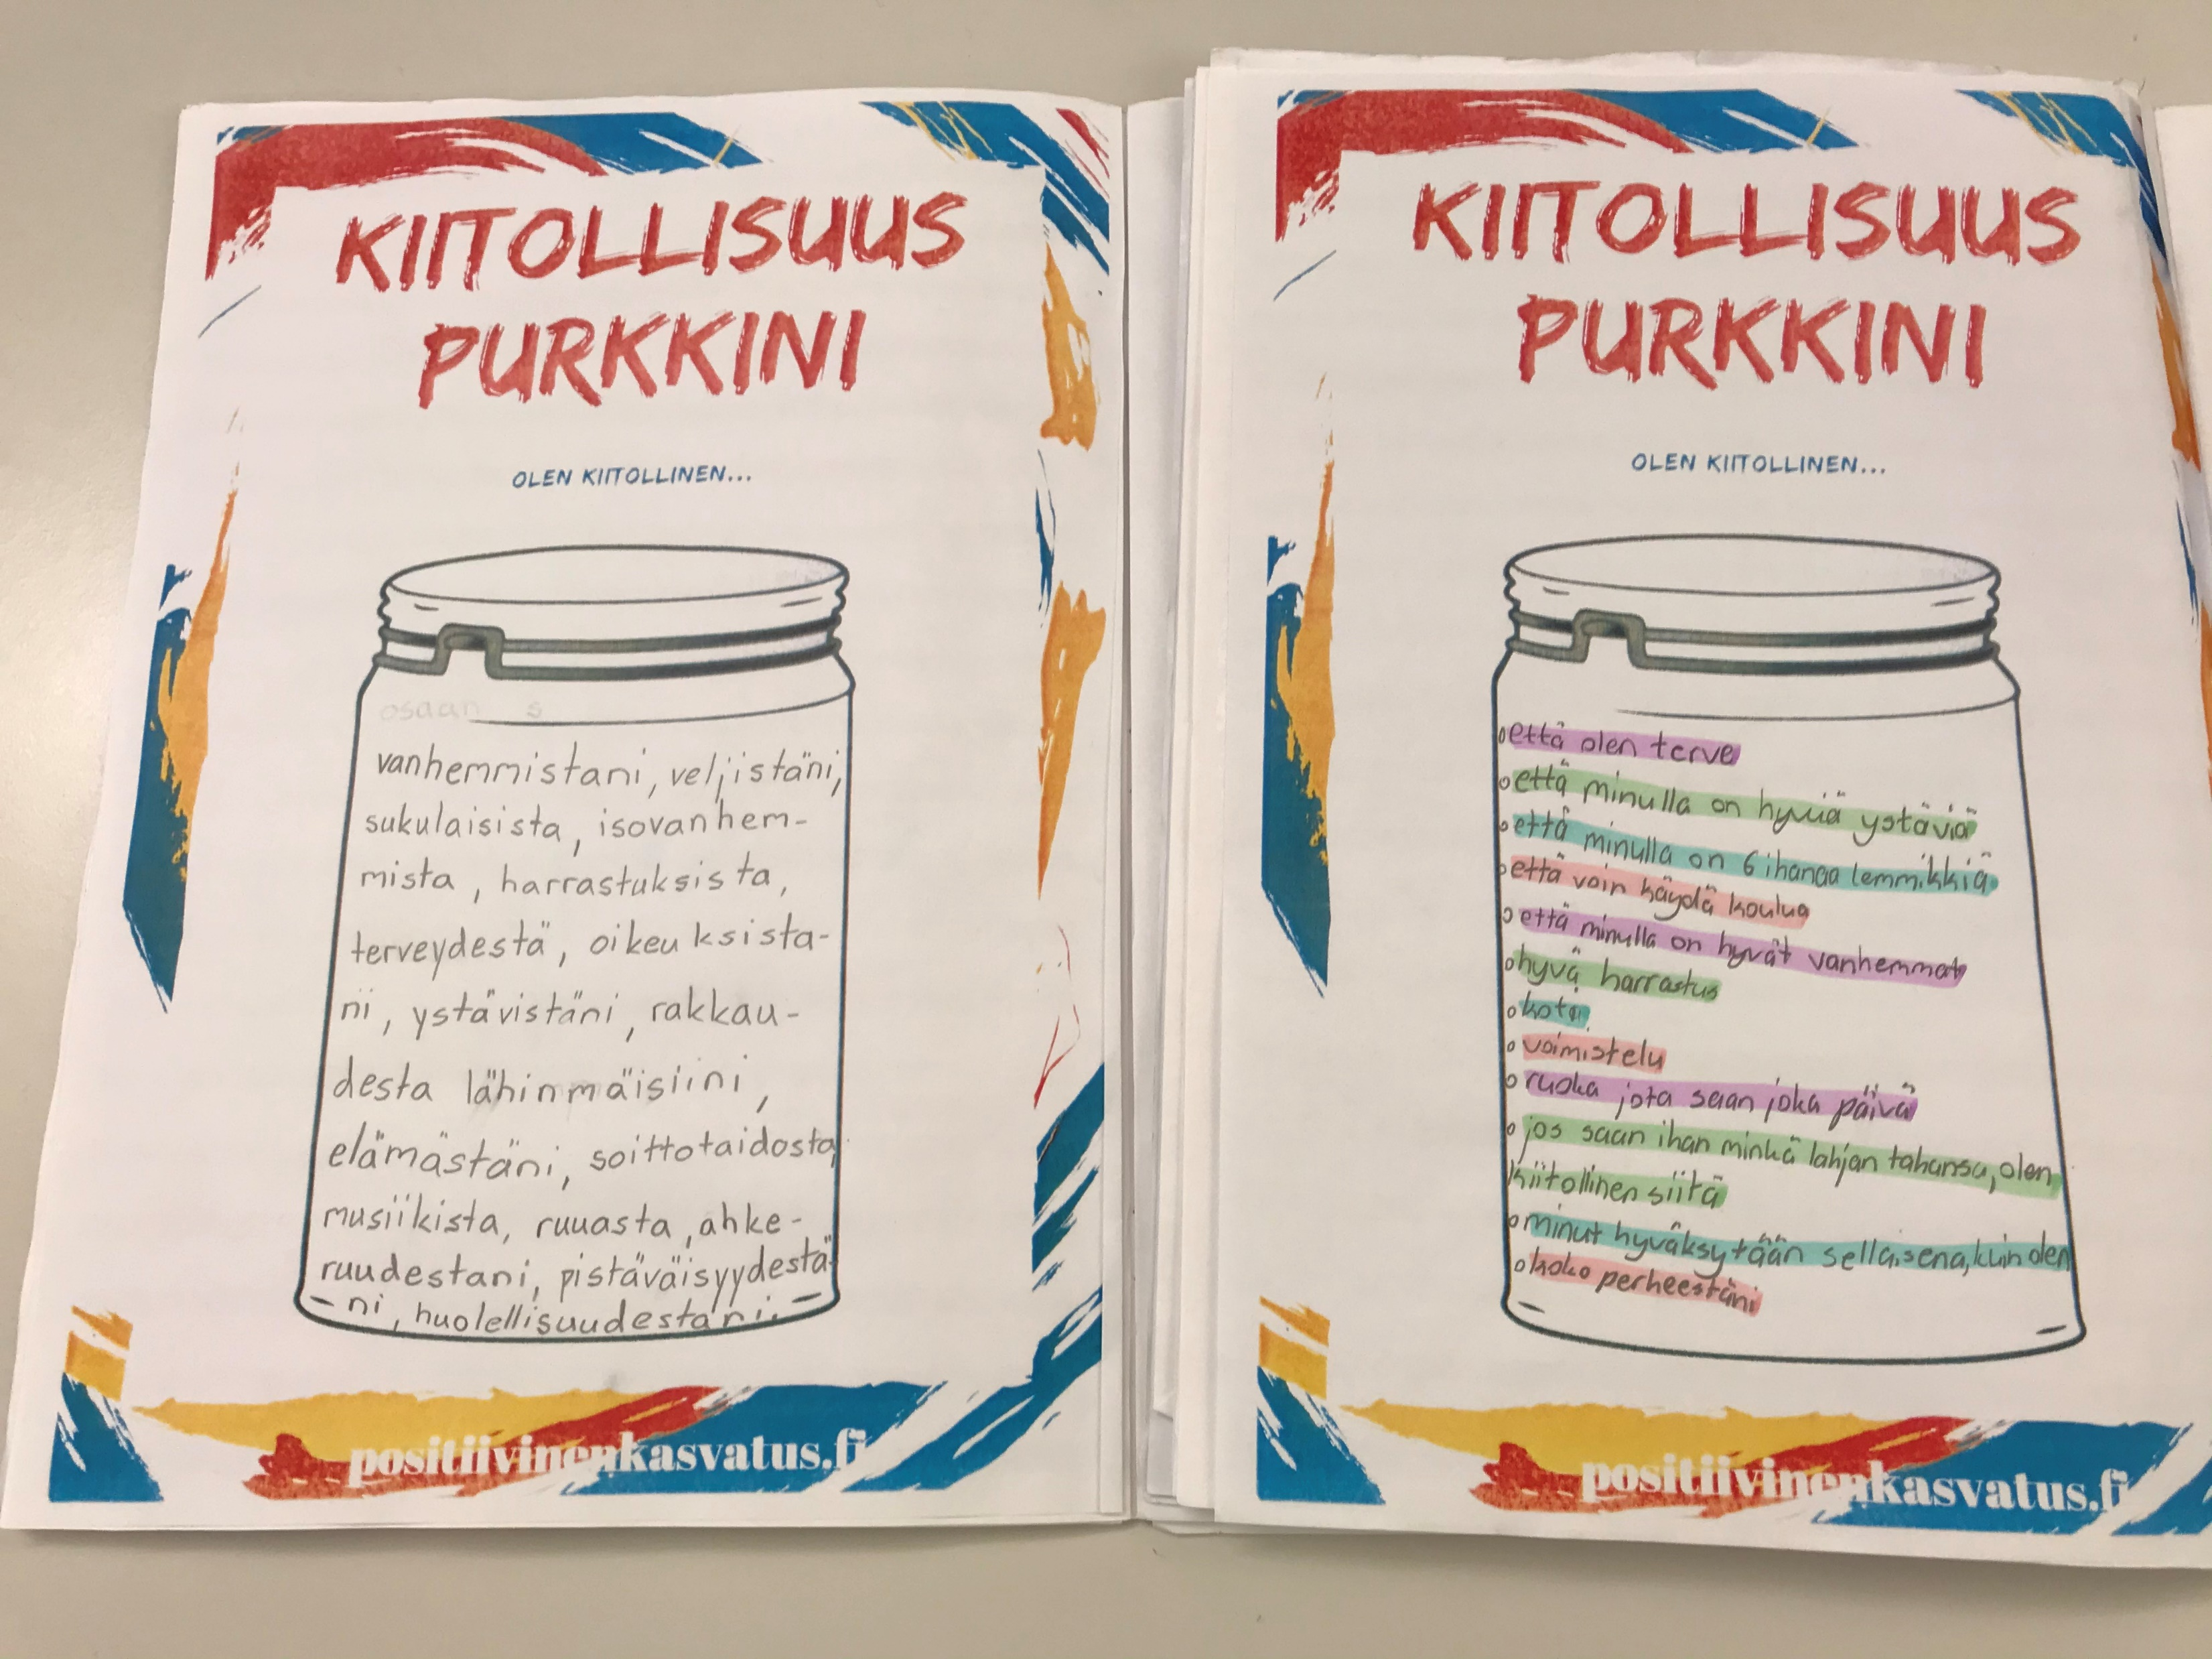 KIITOLLISUUS
PURKKINI
OLEN KIITOLLINEN...
osaan s
vanhemmistani, veljistäni,
sukulaisista, isovanhem-
mista, harrastuksista,
terveydestä, oikeuksista-
ni, ystävistäni, rakkau-
desta lähinmäisiini,
elämästäni, soittotaidosta,
musiikista, ruuasta, ahke-
ruudestani, pistäväisyydestä-
ni, huolellisuudestani.
positiivinenkasvatus.fi
KIITOLLISUUS
PURKKINI
OLEN KIITOLLINEN...
että olen terve
että minulla on hyviä ystäviä
että minulla on 6 ihanaa lemmikkiä
että voin käydä koulua
että minulla on hyvät vanhemmat
hyvä harrastus
koti
voimistelu
ruoka jota saan joka päivä
jos saan ihan minkä lahjan tahansa, olen
kiitollinen siitä
minut hyväksytään sellaisena, kuin olen
koko perheestäni
positiivinenkasvatus.fi